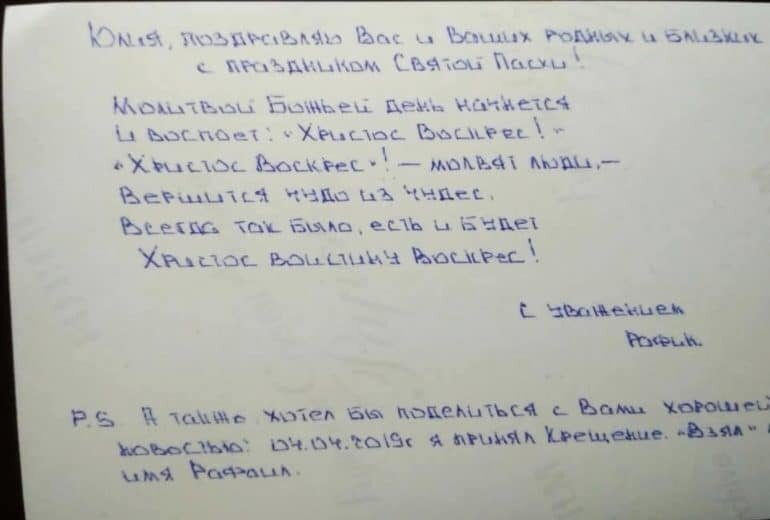 Юлия, поздравляю Вас и Ваших родных и близких
с праздником Святой Пасхи!
Молитвой Божьей день начнется
И воспоет: "Христос Воскрес!"
"Христос Воскрес"! — молвят люди, —
Вершится чудо из чудес.
Всегда так было, есть и будет
Христос воистину Воскрес!
С уважением
Рафик.
P.S. А также хотел бы поделиться с Вами хорошей
новостью: 04.04.2019г я принял Крещение. "Взял"
имя Рафаил.